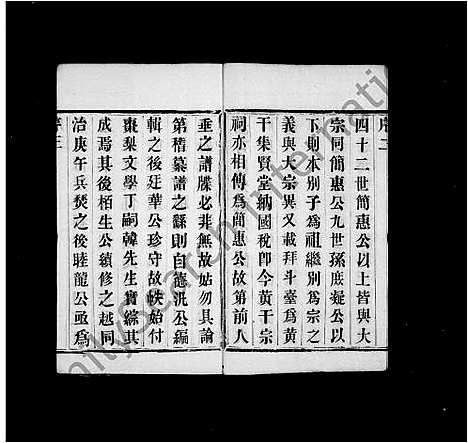 序二
四十二世簡惠公以上皆與大
宗同簡惠公九世孫庶凝公以
下則本别子爲祖繼别爲宗之
義與大宗異又載拜斗臺爲黄
干集賢堂納國稅卽今黄干宗
祠亦相傳爲簡惠公故第前人
垂之譜牒必非無故姑勿具論
第稽纂譜之繇則自德汎公編
輯之後廷華公珍守故帙始付
棗梨文學丁嗣韓先生實綜其
成焉其後栢生公續修之越同
治庚午兵燹之後睦龍公亟爲
序三